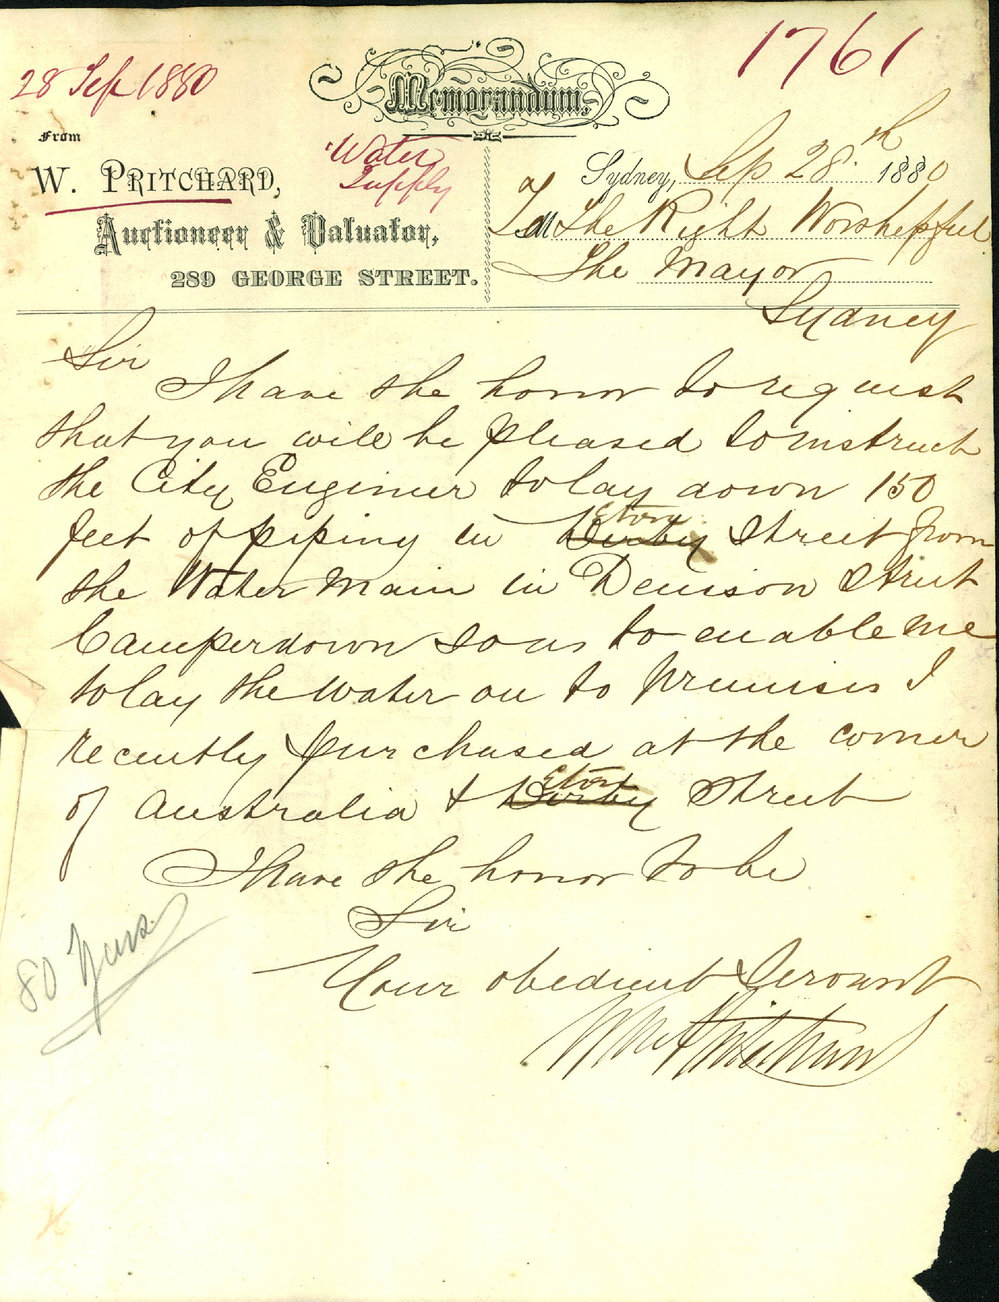 1761
28 Sep 1880
Memorandum,
From
W. PRITCHARD,
Auctioneer & Valuator,
289 GEORGE STREET.
Water
Supply
Sydney, Sep 28th 1880
To M The Right Worshipful
The Mayor
Sydney
Sir
I have the honor to request
that you will be pleased to instruct
the City Engineer to lay down 150
feet of piping in Derby Eton Street from
the Water Main in Denison Street
Camperdown so as to enable me
to lay the water on to premises I
recently purchased at the corner
of Australia & Derby Eton Street
I have the honor to be
Sir
Your obedient Servant
Wm Pritchard
80